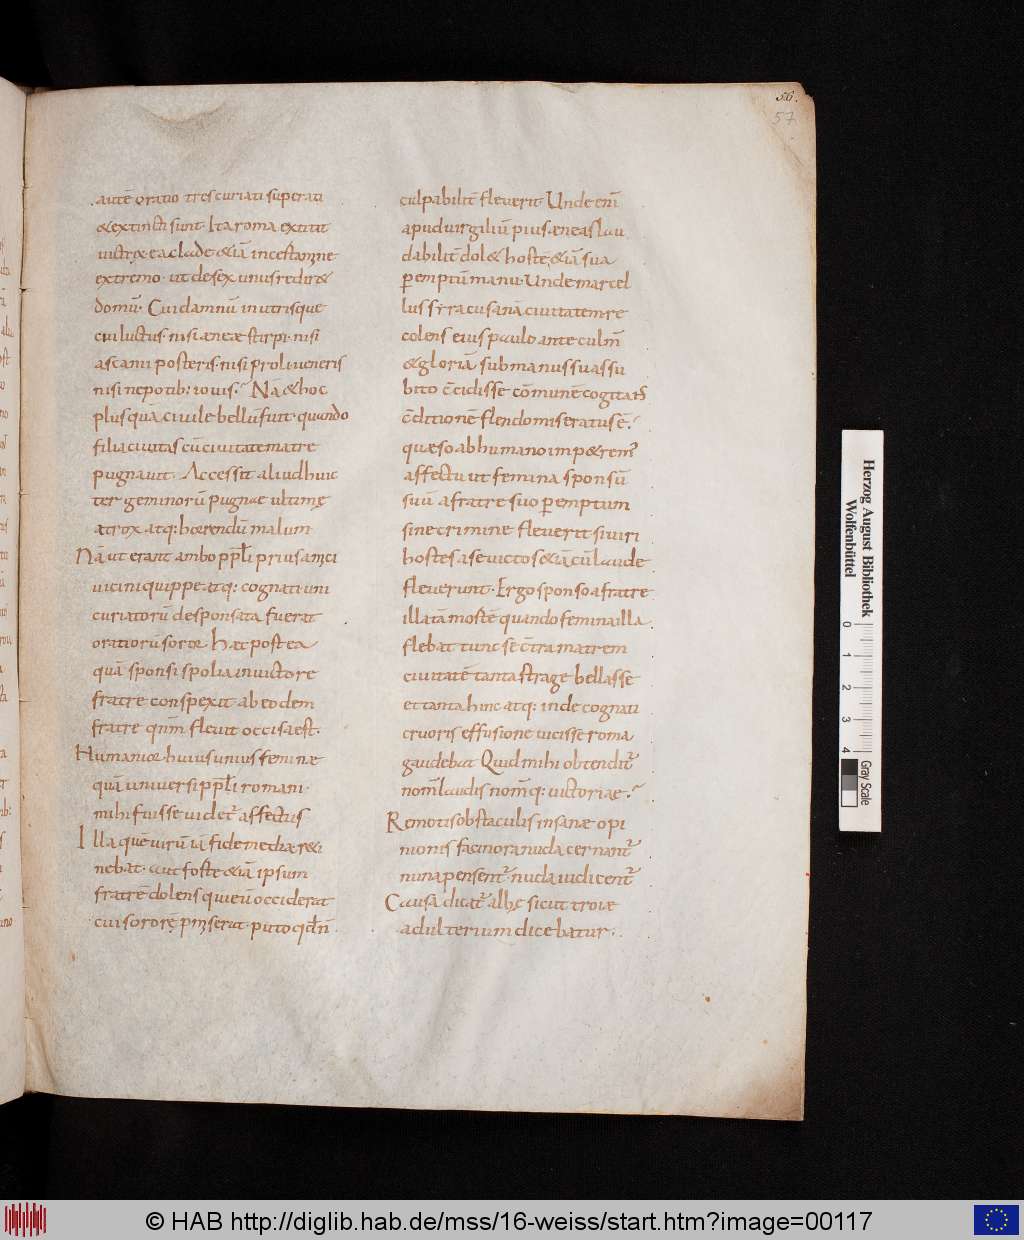 56.
57
autē oratio tres curiati superati
& extincti sunt. Ita roma extitit
uictrix ea clade &iā in certamine
extremo. ut de sex unus redir&
domū. Cui damnū in utrisque
cui luctus. nisi æneæ stirpi. nisi
ascanii posteris. nisi proli ueneris
nisi nepotib: iouis? Nā & hoc
plus quā ciuile bellū fuit. quando
filia ciuitas cū ciuitate matre
pugnauit. Accessit aliud huic
ter geminorū pugnae ultimę
atrox atq: horrendū malum
Nā ut erant ambo pp̄li prius amici
uicini quippe atq: cognati uni
curiatorū desponsata fuerat
oratiorū soror Haec postea
quā sponsi spolia in uictore
fratre conspexit ab eodem
fratre qn̄m fleuit occisa est.
Humanior huius unius feminæ
quā uniuersi pp̄li romani.
mihi fuisse uidet̄ affectus
Illa quē uirū iā fide media r&i
nebat. aut forte &iā ipsum
fratrē dolens qui eū occiderat
cui sororē pmiserat. puto qd n̄
culpabilit̄ fleuerit Unde eni
apud uirgiliū pius æneas lau
dabilit̄ dol& hostē &iā sua
peremptū manu. Unde marcel
lus syracusanā ciuitatem re
colens eius paulo ante culm̄
& gloriā sub manus suas su
bito c̄cidisse cōmunē cogitans
c̄ditionē flendo miseratus ē?
quæso ab humano imp&rem᷒
affectu ut femina sponsū
suū a fratre suo peremptum
sine crimine fleuerit si uiri
hostes a se uictos &iā cū laude
fleuerunt. Ergo sponso a fratre
illatā mortē quando femina illa
flebat tunc se c̄tra matrem
ciuitatē tanta strage bellasse
et tanta hinc atq: inde cognati
cruoris effusione uicisse roma
gaudebat Quid mihi obtendit̄
nom̄ laudis nom̄q: uictoriae?
Remotis obstaculis insanæ opi
nionis facinora nuda cernant̄
nuna pensent̄. nuda iudicent̄
Causa dicat̄ albę sicut troiæ
adulterium dicebatur.
Herzog August Bibliothek
Wolfenbüttel
0 1 2 3 4
Gray Scale
© HAB http://diglib.hab.de/mss/16-weiss/start.htm?image=00117